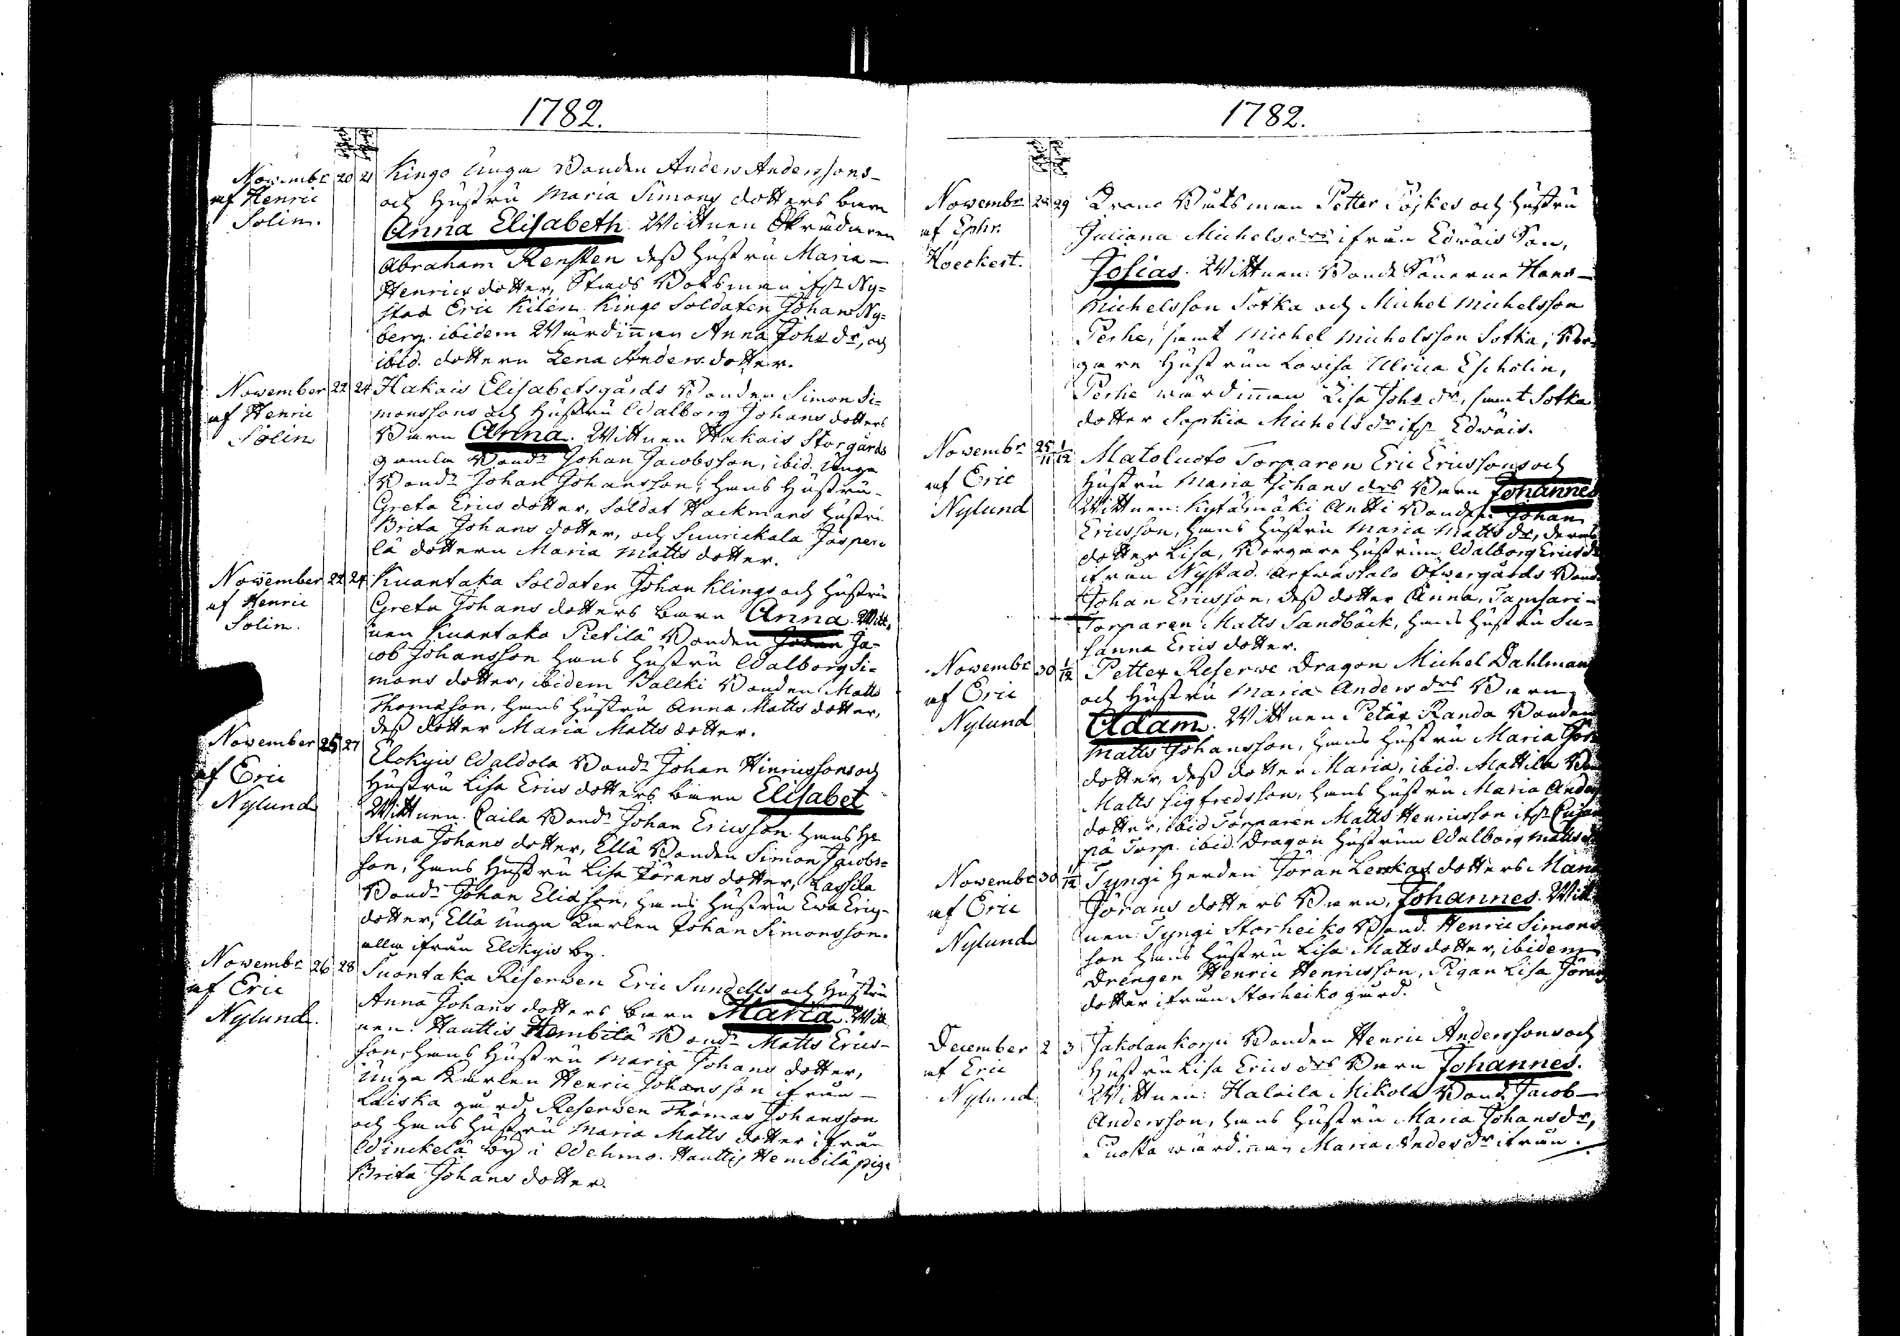 1782.
Novembr 20 21 Kingo Unga Bonden Anders Anderssons
af Henric och Hustru Maria Simons dotters barn
Solin. Anna Elisabeth. Wittnen Skräddaren
Abraham Rensten dess Hustru Maria
Henrics dotter, Stads Båtsman ifr. Ny=
stad Eric Kilén. Kingo Soldaten Johan Ny=
berg. ibidem Wärdinnan Anna Johs dr, och
ibid. dottern Lena Anders dotter.
November 22 24 Hakais Elisabetsgårds Bonden Simon Si=
af Henric monssons och Hustru Walborg Johans dotters
Solin Barn Anna. Wittnen Hakais Storgårds
gamla Bond. Johan Jacobsson, ibid. Unga
Bond. Johan Johansson, hans Hustru
Greta Erics dotter, Soldat Hackmans Hustru
Brita Johans dotter, och Suurickala Jasperi
lä dottern Maria Matts dotter.
November 22 24 Kuantaka Soldaten Johan Klings och Hustru
af Henric Greta Johans dotters barn Anna. Witt
Solin. nen Kuantaka Pietilä Bonden Ja=
cob Johansson hans Hustru Walborg Si=
mons dotter, ibidem Balcki Bonden Matts
Thomasson, hans Hustru Anna Matts dotter,
dess dotter Maria Matts dotter.
November 25 27 Elokyis Waldola Bond. Johan Hinricssons och
af Eric Hustru Lisa Erics dotters barn Elisabet
Nylund Wittnen. Caila Bond. Johan Ericsson hans H.
Stina Johans dotter, Ellä Bonden Simon Jacobs=
son, hans Hustru Lisa Jörans dotter, Lassila
Bond. Johan Eliasson, hans Hustru Ewa Erics
dotter, Ellä Unga Karlen Johan Simonsson.
alla ifrån Elokyis by.
Novembr 26 28 Suontaka Reserven Eric Sundells och Hustru
af Eric Anna Johans dotters barn Maria. Witt
Nylund. nen. Hauttis Hembilä Bond. Matts Erics=
son, hans Hustru Maria Johans dotter,
Unga Karlen Henric Johansson ifrån
Laiska gård, Reserven Thomas Johansson
och hans Hustru Maria Matts dotter ifrån
Winckelä by i Wehmo. Hauttis Hembilä piga
Brita Johans dotter.
1782.
Novembr 28 29 Båtsman Petter Töjkes och Hustru
af Ephr. Juliana Michels drs ifrån Edwäis Son,
Hoeckert. Josias. Wittnen: Bonde Sönerne Hans
Michelsson Sotka och Michel Michelsson
Perhe, samt Michel Michelsson Sotka, Bor=
gare Hustrun Lovisa Ulrica Escholin,
Perhe wärdinnan Lisa Johs dr, samt Sotka
dotter Sophia Michels dr ifr. Edwäis.
Novembr 25/11 1/12 Matoluoto Torparen Eric Ericssons och
af Eric Hustru Maria Johans drs Barn Johannes
Nylund Wittnen: Kytämäki Antti Bonden Johan
Ericsson, hans Hustru Maria Matts dr, deras
dotter Lisa, Borgare Hustrun Walborg Erics dr
ifrån Nystad. Arfwassalo Öfwergårds Bond.
Johan Ericsson, dess dotter Anna, Tamsari
Torparen Matts Sandbäck, hans Hustru Su=
sanna Erics dotter.
Novembr 30 1/12 Petter Reserve Dragon Michel Dahlmans
af Eric och Hustru Maria Anders drs Barn
Nylund Adam. Wittnen Petäx Randa Bonden
Matts Johansson, hans Hustru Maria
dotter, dess dotter Maria, ibid. Mattila
Matts Sigfredsson, hans Hustru Maria Anders
dotter, ibid Torparen Matts Henricsson ifr.
på Torp. ibid. Dragon Hustrun Walborg Matts dr
Novembr 30 1/12 Tyngi Herden Jöran Lenkas dotters Maria
af Eric Jörans dotters Barn, Johannes. Witt
Nylund nen. Tyngi Storheiko Bond. Henric Simons
son hans Hustru Lisa Matts dotter, ibidem
Drengen Henric Henricsson, Pigan Lisa Jörans
dotter ifrån Storheiko gård.
December 2 3 Jakolankorpi Bonden Henric Anderssons och
af Eric Hustru Lisa Erics drs Barn Johannes.
Nylund. Wittnen: Haloila Mikola Bond. Jacob
Andersson, hans Hustru Maria Johans dr,
wärdinnan Maria Anders dr ifrån.